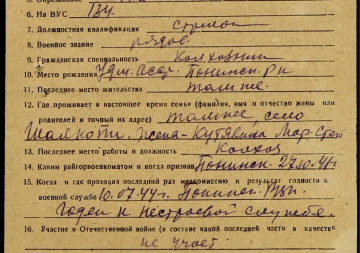 6. На ВУС ТВУ
7. Должностная квалификация стрелок
8. Военное звание рядов.
9. Гражданская специальность Колхозник
10. Место рождения Удм. Асср. Понинск. р-н
11. Последнее место жительства там же.
12. Где проживает в настоящее время семья (фамилия, имя и отчество жены или
родителей и точный их адрес) там же, село
жена - Мар. Степ
13. Последнее место работы и должность Колхоз
14. Каким райгорвоенкоматом и когда призван Понинск. 27.10.41 г.
15. Когда и где проходил последний раз медкомиссию и результат годности к
военной службе 10.07.44 г. Понинск. РВК.
Годен к нестроевой службе.
16. Участие в Отечественной войне (в составе какой последней части, в качестве
не участ.